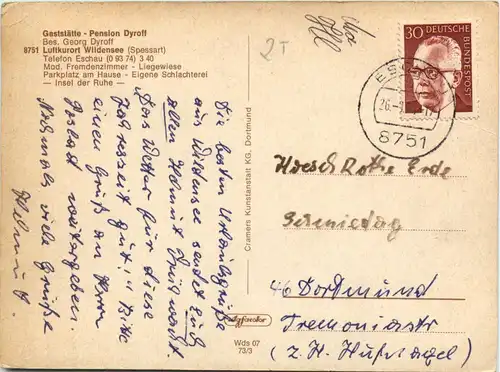 Gaststätte - Pension Dyroff
Bes. Georg Dyroff
8751 Luftkurort Wildensee (Spessart)
Telefon Eschau (0 93 74) 3 40
Mod. Fremdenzimmer - Liegewiese
Parkplatz am Hause - Eigene Schlachterei
— Insel der Ruhe —
2T
30 DEUTSCHE BUNDESPOST
8751
Die besten Urlaubsgrüße
aus Wildensee sendet Euch
allen Helmut
Das Wetter für diese
Jahreszeit gut!! Bitte
einen Gruß an Herrn
weitergeben.
Nochmals viele Grüße
Helmut.
Cramers Kunstanstalt KG, Dortmund
Wds 07
73/3
Hoesch Rothe Erde
Schmiedag
46 Dortmund
Tremoniastr